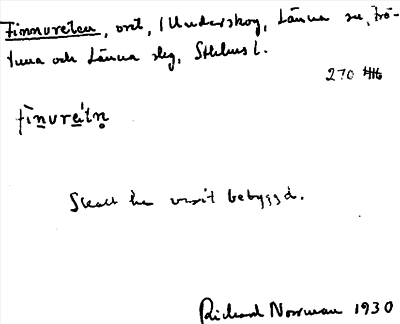 Finnvreten, ort, i Understog, Länna sn, Frö-
tuna och Länna slg, Sthlms l.
270
fìnvre̍tn̥
Skall ha varit bebyggd.
Rickard Norrman 1930